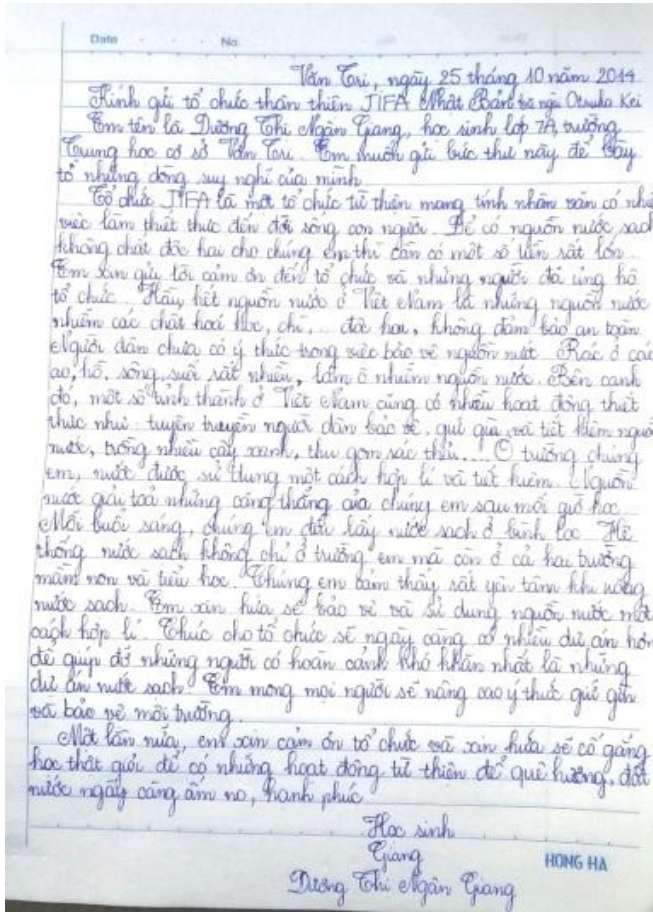 Date No.
Văn Tri, ngày 25 tháng 10 năm 2014
Kính gửi tổ chức thân thiện JIFA Nhật Bản và ngài Otsuka Kei
Em tên là Dương Thị Ngân Giang, học sinh lớp 7A, trường
Trung học cơ sở Văn Tri. Em muốn gửi bức thư này để bày
tỏ những dòng suy nghĩ của mình
Tổ chức JIFA là một tổ chức từ thiện mang tính nhân văn có nhiều
việc làm thiết thực đến đời sống con người. Để có nguồn nước sạch
không chất độc hại cho chúng em thì cần có một số tiền rất lớn.
Em xin gửi lời cảm ơn đến tổ chức và những người đã ủng hộ
tổ chức. Hầu hết nguồn nước ở Việt Nam là những nguồn nước
nhiễm các chất hoá học, chì,... độc hại, không đảm bảo an toàn
Người dân chưa có ý thức trong việc bảo vệ nguồn nước. Rác ở các
ao, hồ, sông, suối rất nhiều, làm ô nhiễm nguồn nước. Bên cạnh
đó, một số tỉnh thành ở Việt Nam cũng có nhiều hoạt động thiết
thực như: tuyên truyền người dân bảo vệ, giữ gìn và tiết kiệm nguồn
nước, trồng nhiều cây xanh, thu gom rác thải.... Ở trường chúng
em, nước được sử dụng một cách hợp lí và tiết kiệm. Nguồn
nước giải toả những căng thẳng của chúng em sau mỗi giờ học.
Mỗi buổi sáng, chúng em đều lấy nước sạch ở bình lọc. Hệ
thống nước sạch không chỉ ở trường em mà còn ở cả hai trường
mầm non và tiểu học. Chúng em cảm thấy rất yên tâm khi uống
nước sạch. Em xin hứa sẽ bảo vệ và sử dụng nguồn nước một
cách hợp lí. Chúc cho tổ chức sẽ ngày càng có nhiều dự án hơn
để giúp đỡ những người có hoàn cảnh khó khăn nhất là những
dự án nước sạch. Em mong mọi người sẽ nâng cao ý thức giữ gìn
và bảo vệ môi trường.
Một lần nữa, em xin cảm ơn tổ chức và xin hứa sẽ cố gắng
học thật giỏi để có những hoạt động từ thiện để quê hương, đất
nước ngày càng ấm no, hạnh phúc
Học sinh
Giang
Dương Thị Ngân Giang
HONG HA